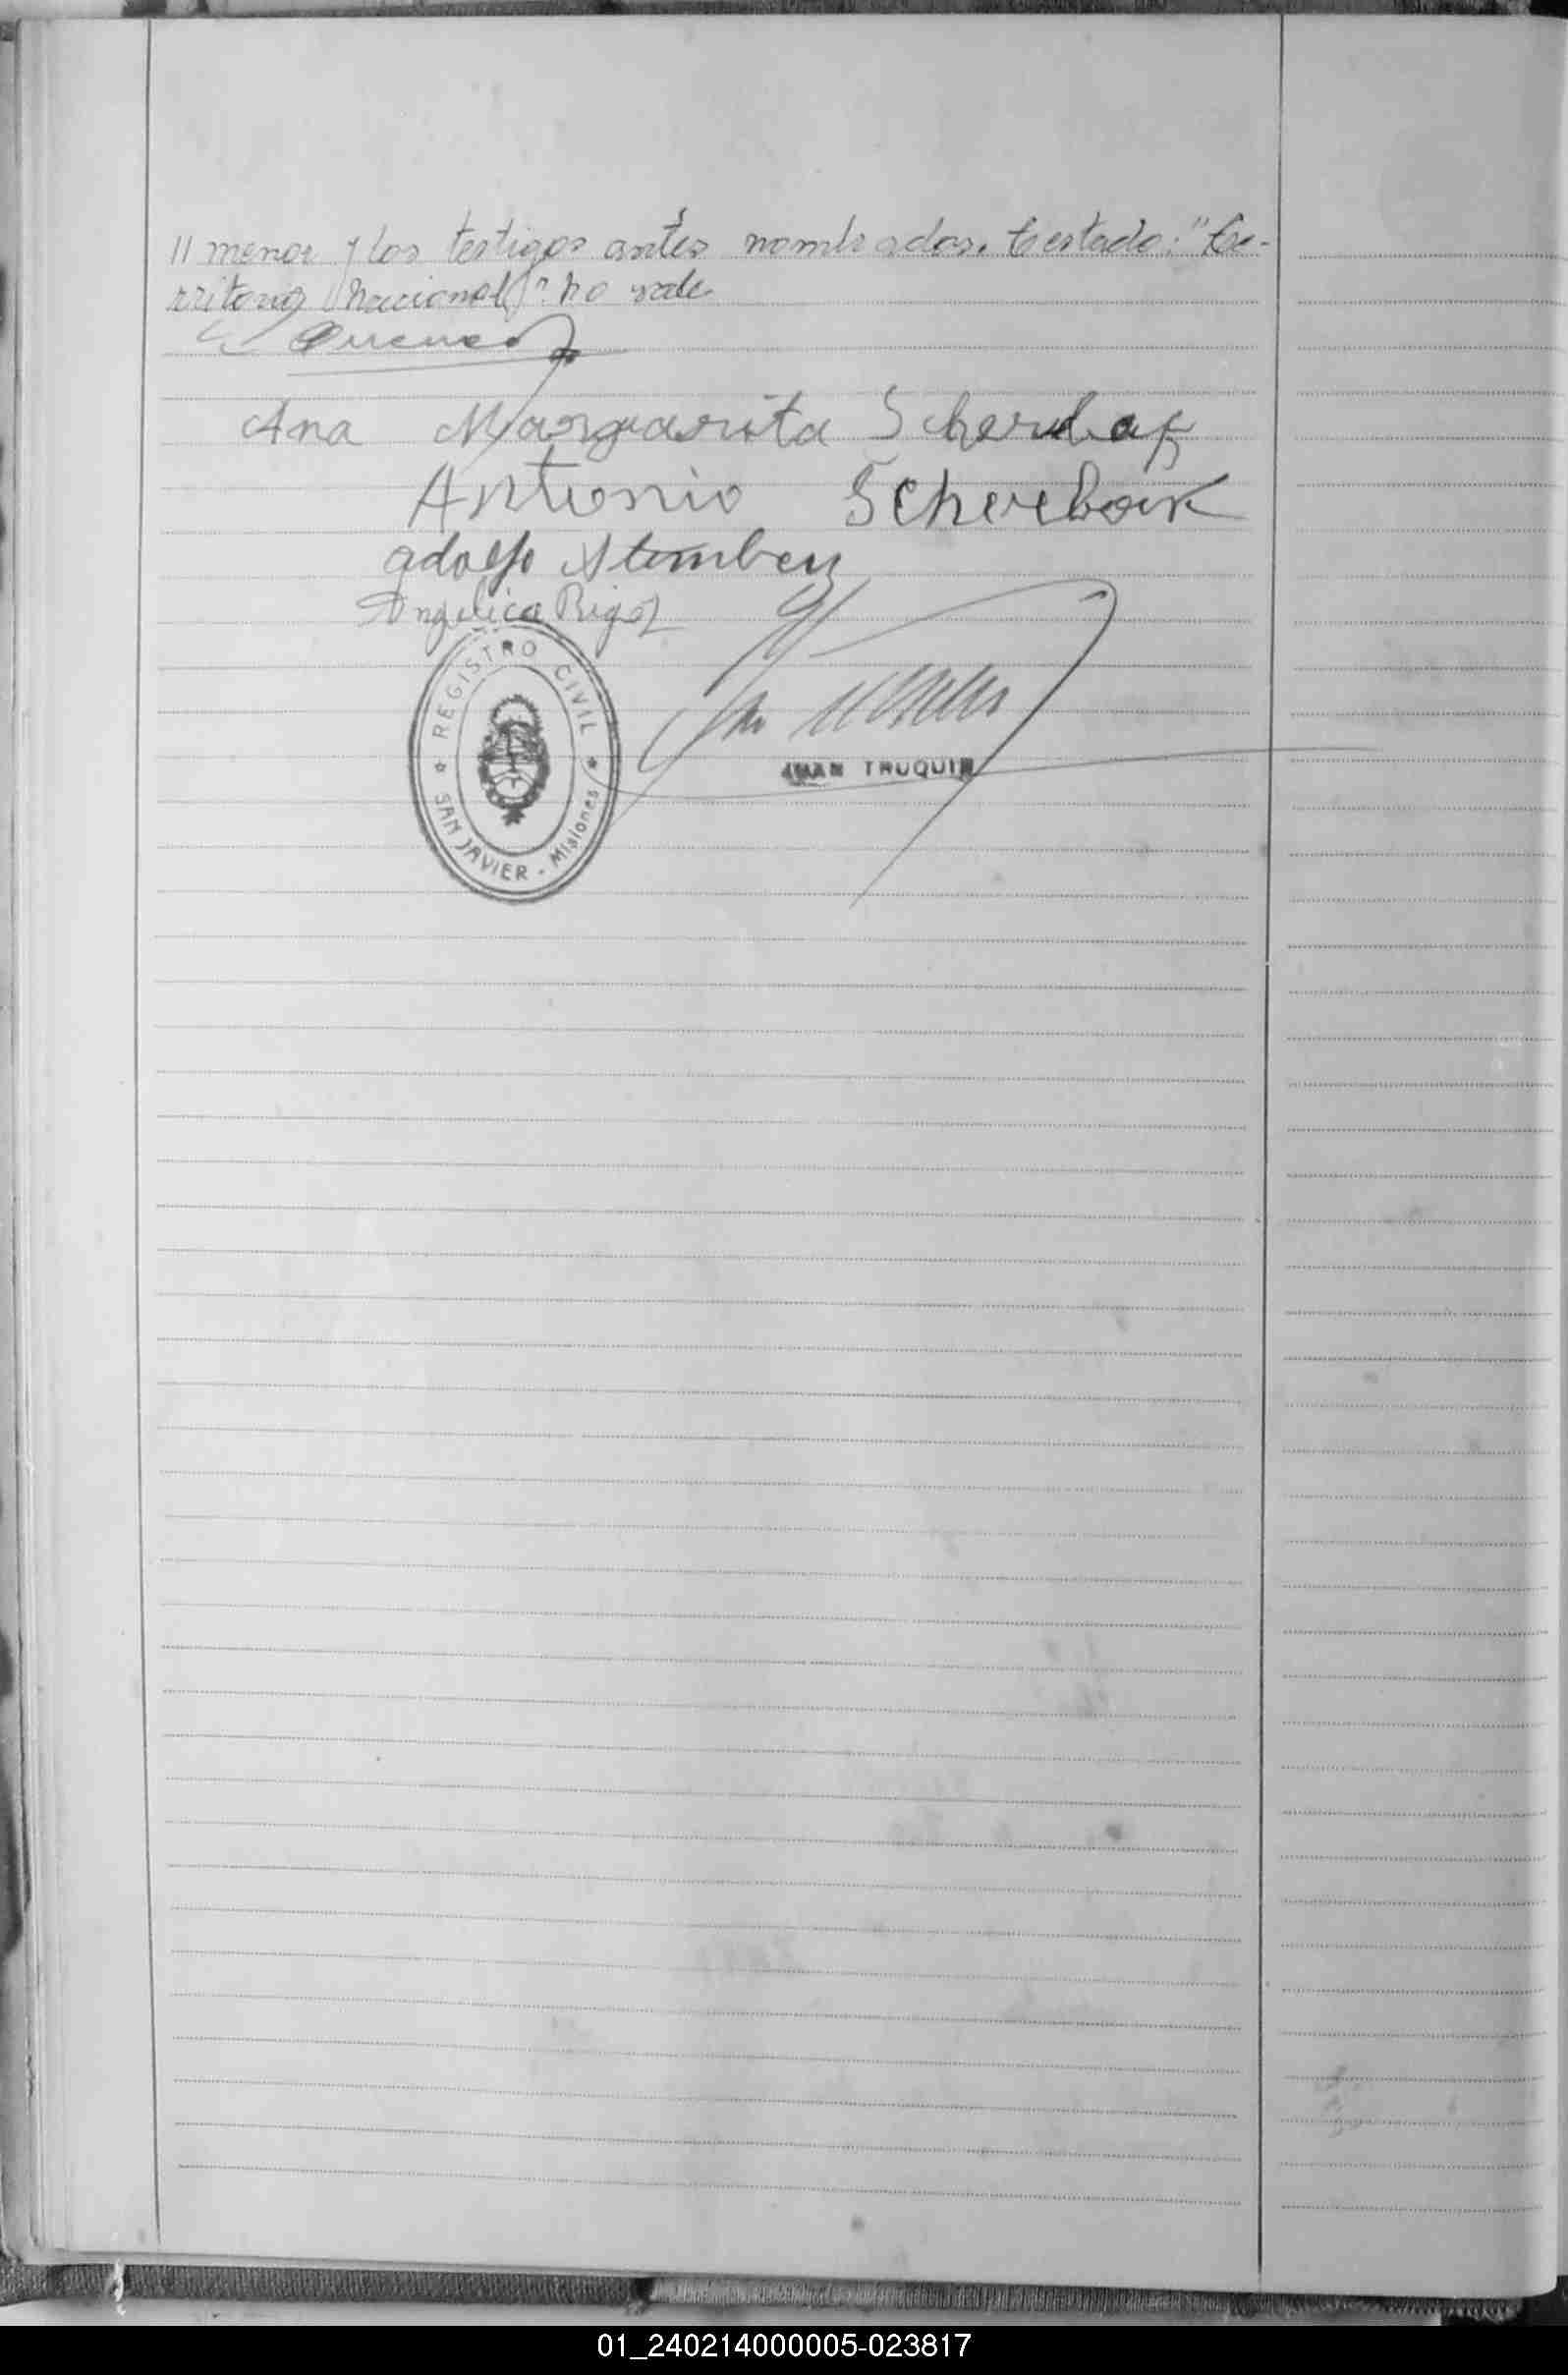 // menor y los testigos antes nombrados. Testado: "Te-
rritorio Nacional" no vale
Ana Marguarita Scherbak
Antonio Scherbak
adolfo
Angelica
REGISTRO CIVIL
SAN JAVIER - Misiones
JUAN TRUQUIN
01_240214000005-023817